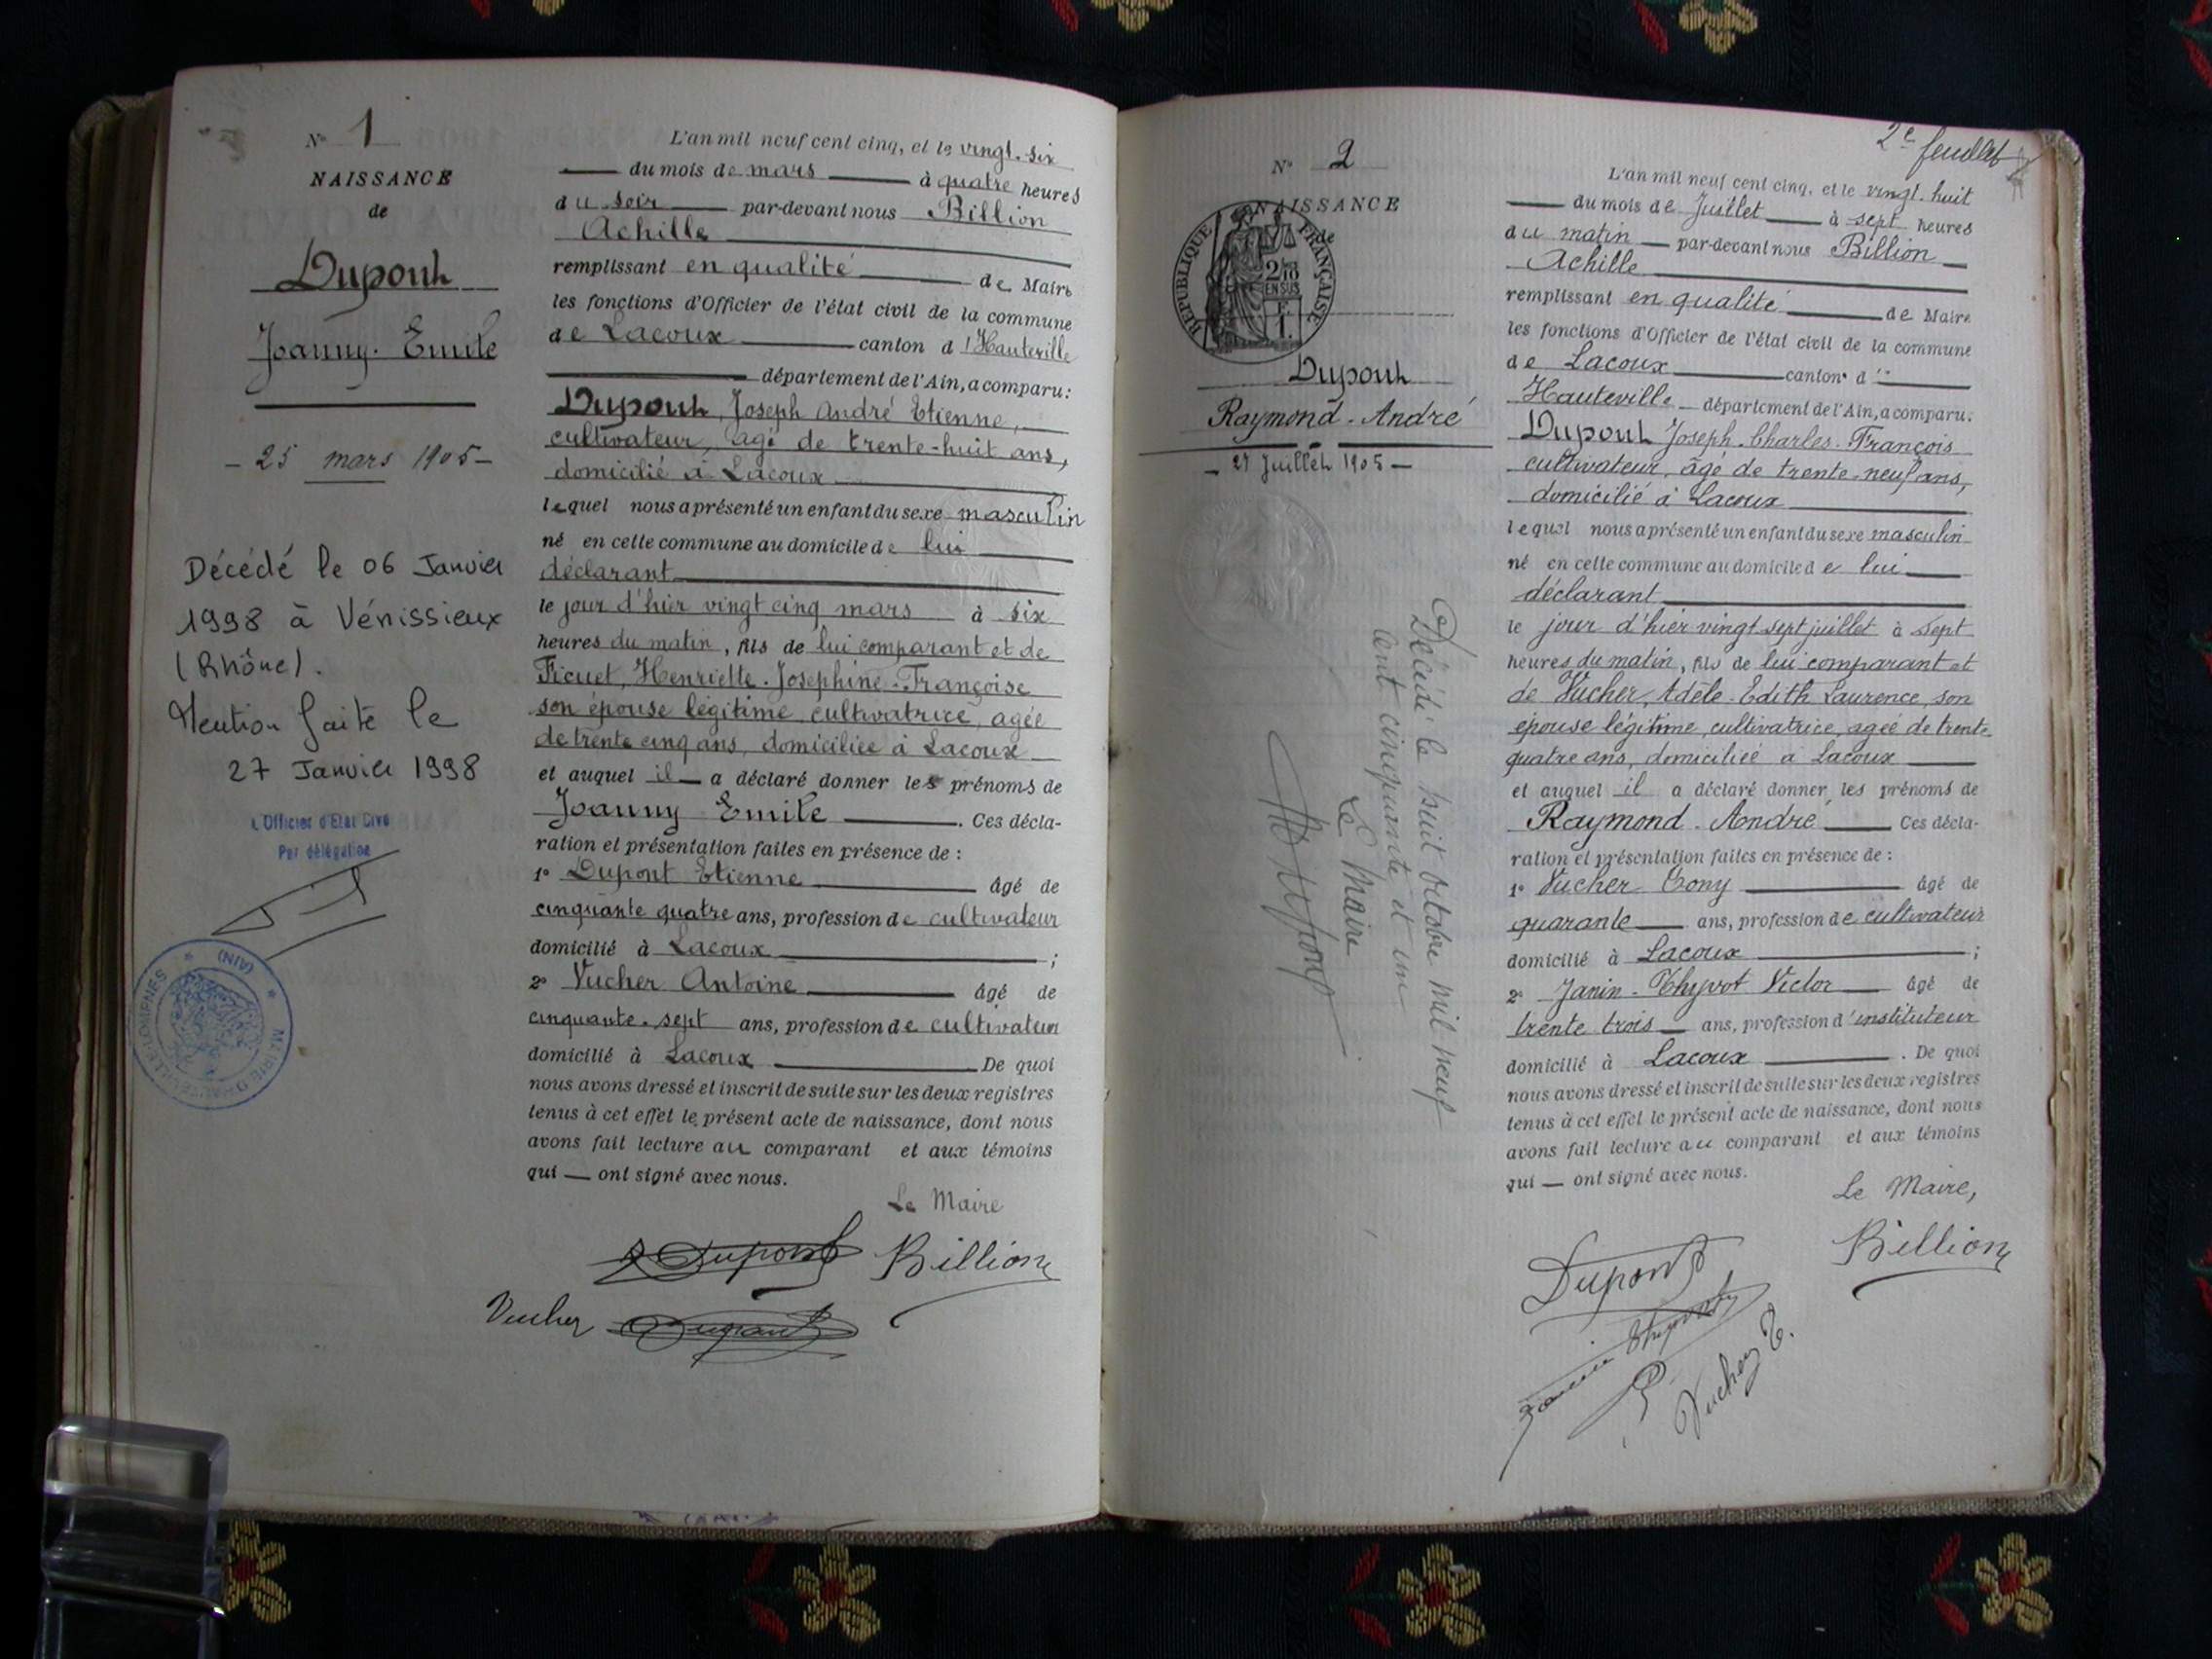 N° 1
NAISSANCE
de
Dupont
Joanny-Emile
- 25 mars 1905 -
Décédé le 06 Janvier
1998 à Vénissieux
(Rhône).
Mention faite le
27 Janvier 1998
L'Officier d'Etat Civil
Par délégation
MAIRIE D'HAUTEVILLE-LOMPNES
(AIN)
L'an mil neuf cent cinq, et le vingt-six
du mois de mars à quatre heures
du soir par-devant nous Billion
Achille
remplissant en qualité de Maire
les fonctions d'Officier de l'état civil de la commune
de Lacoux canton d'Hauteville
département de l'Ain, a comparu :
Dupont, Joseph André Etienne,
cultivateur, agé de trente-huit ans,
domicilié à Lacoux
lequel nous a présenté un enfant du sexe masculin
né en cette commune au domicile de lui
déclarant
le jour d'hier vingt cinq mars à six
heures du matin, fils de lui comparant et de
Ficuet, Henriette-Joséphine-Françoise
son épouse légitime, cultivatrice, agée
de trente cinq ans, domiciliée à Lacoux
et auquel il a déclaré donner les prénoms de
Joanny Emile. Ces décla-
ration et présentation faites en présence de :
1° Dupont Etienne âgé de
cinquante quatre ans, profession de cultivateur
domicilié à Lacoux ;
2° Vucher Antoine âgé de
cinquante-sept ans, profession de cultivateur
domicilié à Lacoux De quoi
nous avons dressé et inscrit de suite sur les deux registres
tenus à cet effet le présent acte de naissance, dont nous
avons fait lecture au comparant et aux témoins
qui — ont signé avec nous.
Le Maire
Dupont Billion
Vucher Dupont
2e feuillet
N° 2
NAISSANCE
de
RÉPUBLIQUE FRANÇAISE
2/10
EN SUS
Dupont
Raymond-André
- 27 Juillet 1905 -
Décédé le huit octobre mil neuf
cent cinquante et un
Le Maire
L'an mil neuf cent cinq, et le vingt-huit
du mois de Juillet à sept heures
du matin par-devant nous Billion
Achille
remplissant en qualité de Maire
les fonctions d'Officier de l'état civil de la commune
de Lacoux canton d'
Hauteville département de l'Ain, a comparu.
Dupont Joseph-Charles-François
cultivateur, âgé de trente-neuf ans,
domicilié à Lacoux
lequel nous a présenté un enfant du sexe masculin
né en cette commune au domicile de lui
déclarant
le jour d'hier vingt sept juillet à sept
heures du matin, fils de lui comparant et
de Vucher, Adèle-Edith Laurence, son
épouse légitime, cultivatrice, agée de trente
quatre ans, domiciliée à Lacoux
et auquel il a déclaré donner les prénoms de
Raymond-André Ces décla-
ration et présentation faites en présence de :
1° Vucher Tony âgé de
quarante ans, profession de cultivateur
domicilié à Lacoux ;
2° Janin-Thyvot Victor âgé de
trente trois ans, profession d'instituteur
domicilié à Lacoux. De quoi
nous avons dressé et inscrit de suite sur les deux registres
tenus à cet effet le présent acte de naissance, dont nous
avons fait lecture au comparant et aux témoins
qui — ont signé avec nous.
Le Maire,
Dupont Billion
Janin Thyvot
Vucher T.